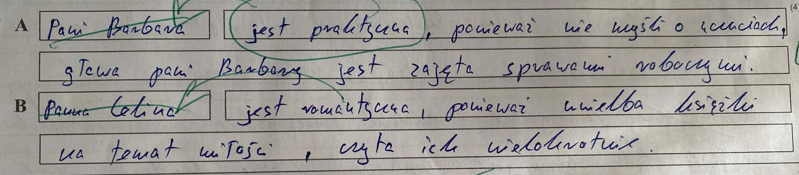 A Pani Barbara jest praktyczna, ponieważ nie myśli o uczuciach,
głowa pani Barbary jest zajęta sprawami roboczymi.
B Panna Celina jest romantyczna, ponieważ uwielba książki
na temat miłości, czyta ich wielokrotnie.